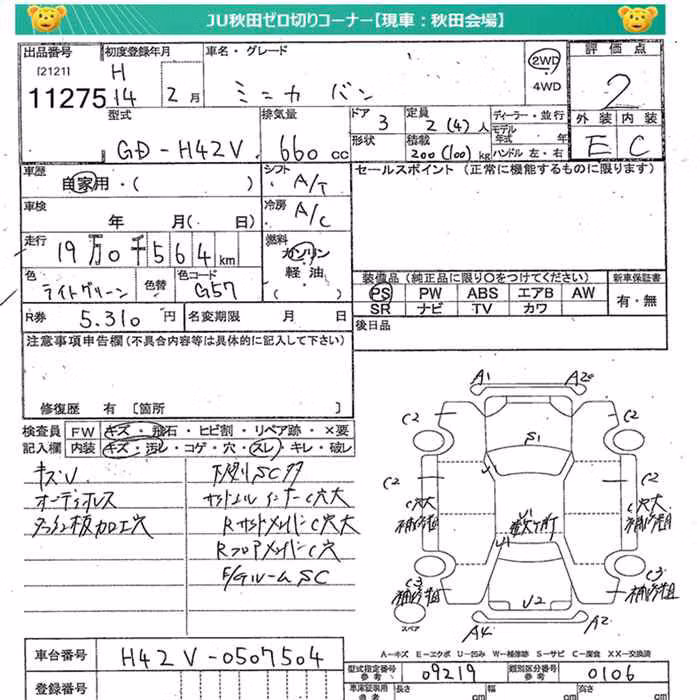 JU秋田ゼロ切りコーナー【現車：秋田会場】
出品番号 初度登録年月 車名・グレード 評価点
[2121] H
11275 14 2月 ミニカ バン 2WD 4WD 2
型式 排気量 ドア 3 定員 2(4)人 ディーラー・並行 外装 内装
GD-H42V 660cc 形状 積載 200(100)kg モデル年式 年 ハンドル 左・右 E C
車歴 自家用・( ) シフト A/T セールスポイント(正常に機能するものに限ります)
車検 年 月( 日) 冷房 A/C
走行 19万0千564km 燃料 ガソリン 軽油 ( )
色 ライトグリーン 色替 色コード G57
装備品(純正品に限り○をつけてください) 新車保証書
PS PW ABS エアB AW 有・無
SR ナビ TV カワ
R券 5.310円 名変期限 月 日 後日品
注意事項申告欄(不具合内容等は具体的に記入して下さい)
修復歴 有 [箇所 ]
検査員 FW キズ・飛石・ヒビ割・リペア跡・×要
記入欄 内装 キズ・汚レ・コゲ・穴・スレ・キレ・破レ
キズU 下廻りSC
オーディオレス サイドシル インナーC穴大
板加工穴 RサイドメンバーC穴大
RフロアメンバーC穴
E/GルームSC
A1 A2
C2 C2
S1
U1
C2 C2
C穴大 補修跡 C穴大 補修跡
U1
U1
C3 補修跡 C3 補修跡
スペア
U2
A4 A2
A－キズ E－エクボ U－凹み W－補修跡 S－サビ C－腐食 XX－交換済
車台番号 H42V-0507504
型式指定番号 参考 09219 類別区分番号 参考 0106
登録番号 車庫証明用 参考 長さ cm 幅 cm 高さ cm